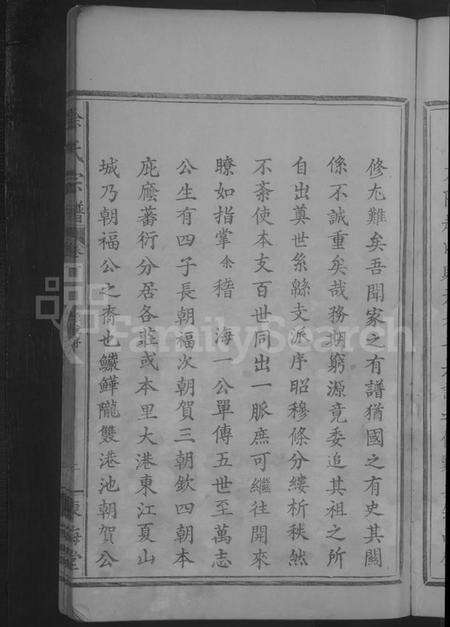 修尤難矣吾聞家之有譜猶國之有史其關
係不誠重矣哉務期窮源竟委追其祖之所
自出奠世系緜支派序昭穆條分縷析秩然
不紊使本支百世同出一脈庶可繼往開來
瞭如指掌余稽 海一公單傳五世至萬志
公生有四子長朝福次朝賀三朝欽四朝本
庇廕蕃衍分居各莊或本里大港東江夏山
城乃朝福公之裔也鱇鱓隴雙港池朝賀公
徐氏宗譜
東海堂
FamilySearch